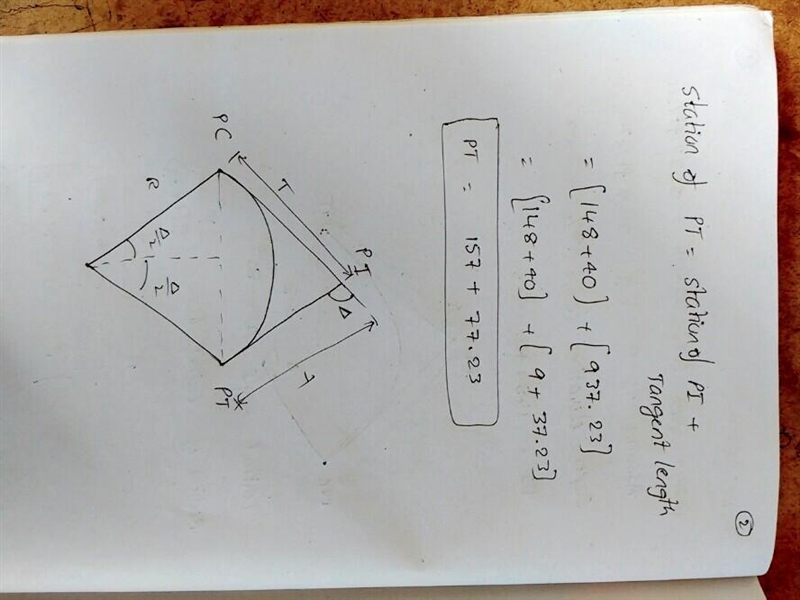 ②
Station of PT = station of PI +
Tangent length
= [148+40] + [937.23]
= [148+40] + [9+37.23]
PT = 157 + 77.23
PI
Δ
T
T
PC
PT
R
Δ/2
Δ/2